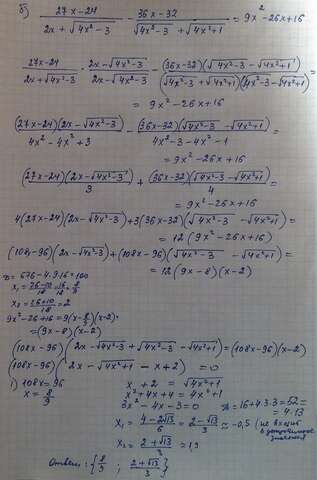 б) (27x-24)/(2x+√(4x²-3)) - (36x-32)/(√(4x²-3)+√(4x²+1)) = 9x²-26x+16
(27x-24)/(2x+√(4x²-3)) · (2x-√(4x²-3))/(2x-√(4x²-3)) - (36x-32)(√(4x²-3)-√(4x²+1))/((√(4x²-3)+√(4x²+1))(√(4x²-3)-√(4x²+1))) =
= 9x²-26x+16
(27x-24)(2x-√(4x²-3))/(4x²-4x²+3) - (36x-32)(√(4x²-3)-√(4x²+1))/(4x²-3-4x²-1) =
= 9x²-26x+16
(27x-24)(2x-√(4x²-3))/3 + (36x-32)(√(4x²-3)-√(4x²+1))/4 =
= 9x²-26x+16
4(27x-24)(2x-√(4x²-3))+3(36x-32)(√(4x²-3)-√(4x²+1)) =
= 12(9x²-26x+16)
(108x-96)(2x-√(4x²-3))+(108x-96)(√(4x²-3)-√(4x²+1)) =
= 12(9x-8)(x-2)
D=676-4·9·16=100
x₁=(26-10)/18=16/18=8/9
x₂=(26+10)/18=2
9x²-26x+16=9(x-8/9)(x-2)=
=(9x-8)(x-2)
(108x-96)(2x-√(4x²-3)+√(4x²-3)-√(4x²+1))=(108x-96)(x-2)
(108x-96)(2x-√(4x²+1)-x+2)=0
1) 108x=96
x=8/9
x+2=√(4x²+1)
x²+4x+4=4x²+1
3x²-4x-3=0
D=16+4·3·3=52=
=4·13
x₁=(4-2√13)/6=(2-√13)/3≈-0,5 (не входит в
значения)
x₂=(2+√13)/3≈1,9
Ответ: {8/9; (2+√13)/3}